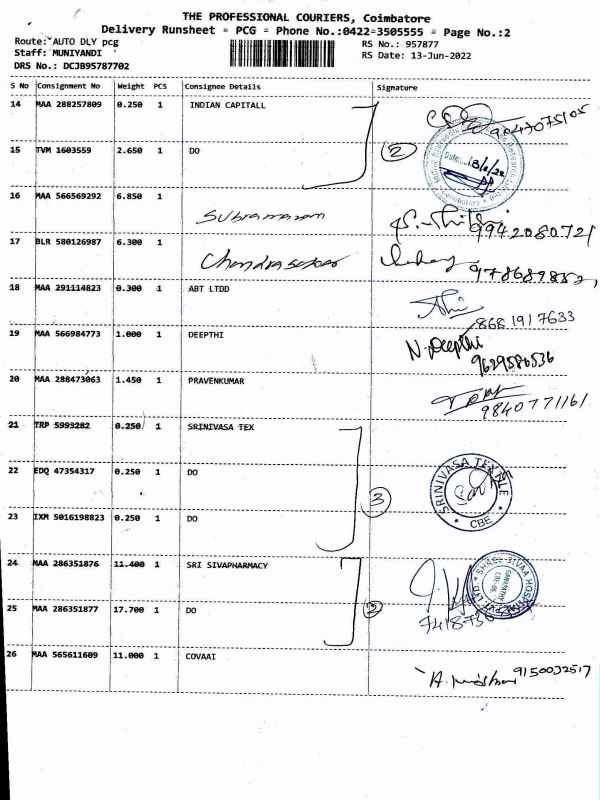 THE PROFESSIONAL COURIERS, Coimbatore
Delivery Runsheet = PCG = Phone No.:0422-3505555 = Page No.:2
Route: AUTO DLY pcg
RS No.: 957877
Staff: MUNIYANDI
RS Date: 13-Jun-2022
DRS No.: DCJB95787702
S No Consignment No Weight PCS Consignee Details Signature
14 MAA 288257809 0.250 1 INDIAN CAPITALL
9047075105
15 TVM 1603559 2.650 1 DO 2
Date:
16 MAA 566569292 6.850 1
Subramaniam
9942080721
17 BLR 580126987 6.300 1
Chandrasekar
18 MAA 291114823 0.300 1 ABT LTDD
8681917633
19 MAA 566984773 1.000 1 DEEPTHI N. Deepthi
9629586536
20 MAA 288473063 1.450 1 PRAVENKUMAR
9840771161
21 TRP 5993282 0.250 1 SRINIVASA TEX
22 EDQ 47354317 0.250 1 DO
3
SRINIVASA TEXTILE
CBE
23 IXM 5016198823 0.250 1 DO
24 MAA 286351876 11.400 1 SRI SIVAPHARMACY
25 MAA 286351877 17.700 1 DO 2
26 MAA 565611609 11.000 1 COVAAI
9150032517